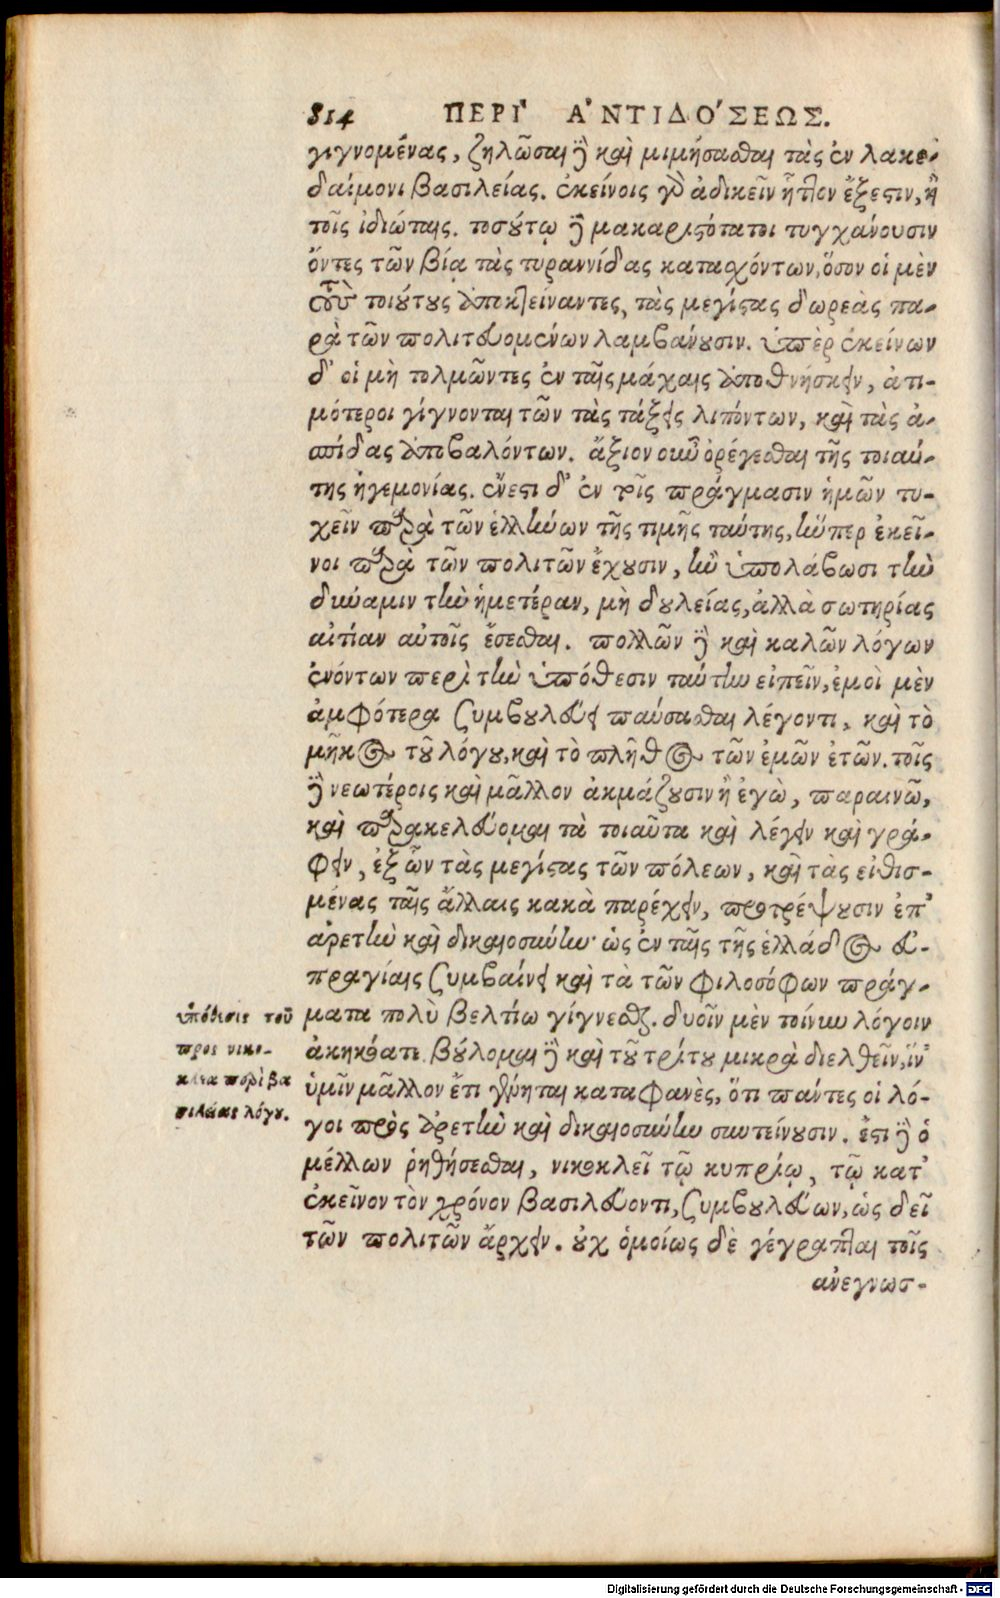 814 ΠΕΡΙ` Α᾿ΝΤΙΔΟ´ΣΕΩΣ.
γιγνομένας, ζηλῶσαι δὲ καὶ μιμήσασθαι τὰς ἐν λακε-
δαίμονι βασιλείας. ἐκείνοις γὰρ ἀδικεῖν ἧττον ἔξεστιν, ἢ
τοῖς ἰδιώταις. τοσούτῳ δὲ μακαριστότατοι τυγχάνουσιν
ὄντες τῶν βίᾳ τὰς τυραννίδας κατασχόντων, ὅσον οἱ μὲν
τοὺς τοιούτους ἀποκτείναντες, τὰς μεγίστας δωρεὰς πα-
ρὰ τῶν πολιτευομένων λαμβάνουσιν. ὑπὲρ ἐκείνων
δ' οἱ μὴ τολμῶντες ἐν ταῖς μάχαις ἀποθνήσκειν, ἀτι-
μότεροι γίγνονται τῶν τὰς τάξεις λιπόντων, καὶ τὰς ἀ-
σπίδας ἀποβαλόντων. ἄξιον οὖν ὀρέγεσθαι τῆς τοιαύ-
της ἡγεμονίας. ἔνεστι δ' ἐν τοῖς πράγμασιν ἡμῶν τυ-
χεῖν παρὰ τῶν ἑλλήνων τῆς τιμῆς ταύτης, ἥνπερ ἐκεῖ-
νοι παρὰ τῶν πολιτῶν ἔχουσιν, ἢν ὑπολάβωσι τὴν
δύναμιν τὴν ἡμετέραν, μὴ δουλείας, ἀλλὰ σωτηρίας
αἰτίαν αὐτοῖς ἔσεσθαι. πολλῶν δὲ καὶ καλῶν λόγων
ἐνόντων περὶ τὴν ὑπόθεσιν ταύτην εἰπεῖν, ἐμοὶ μὲν
ἀμφότερα συμβουλεύει παύσασθαι λέγοντι, καὶ τὸ
μῆκος τοῦ λόγου, καὶ τὸ πλῆθος τῶν ἐμῶν ἐτῶν. τοῖς
δὲ νεωτέροις καὶ μᾶλλον ἀκμάζουσιν ἢ ἐγὼ, παραινῶ,
καὶ παρακελεύομαι τὰ τοιαῦτα καὶ λέγειν καὶ γρά-
φειν, ἐξ ὧν τὰς μεγίστας τῶν πόλεων, καὶ τὰς εἰθισ-
μένας ταῖς ἄλλαις κακὰ παρέχειν, προτρέψουσιν ἐπ'
ἀρετὴν καὶ δικαιοσύνην· ὡς ἐν ταῖς τῆς ἑλλάδος εὐ-
πραγίαις συμβαίνει καὶ τὰ τῶν φιλοσόφων πράγ-
ματα πολὺ βελτίω γίγνεσθαι. δυοῖν μὲν τοίνυν λόγοιν
ἀκηκόατε. βούλομαι δὲ καὶ τοῦ τρίτου μικρὰ διελθεῖν, ἵν'
ὑμῖν μᾶλλον ἔτι γένηται καταφανὲς, ὅτι πάντες οἱ λό-
γοι πρὸς ἀρετὴν καὶ δικαιοσύνην συντείνουσιν. ἔστι δὲ ὁ
μέλλων ῥηθήσεσθαι, νικοκλεῖ τῷ κυπρίῳ, τῷ κατ'
ἐκεῖνον τὸν χρόνον βασιλεύοντι, συμβουλεύων, ὡς δεῖ
τῶν πολιτῶν ἄρχειν. οὐχ ὁμοίως δὲ γέγραπται τοῖς
ἀνεγνωσ-
ὑπόθεσις τοῦ
προς νικο-
κλέα περὶ βα
σιλείας λόγου.
Digitalisierung gefördert durch die Deutsche Forschungsgemeinschaft - DFG